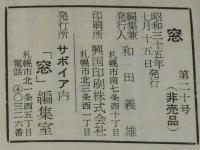 窓 第二十号
(非売品)
昭和三十五年発行
七月十五日
編集兼
発行人 和田義雄
札幌市南七条西十丁目
印刷所 興国印刷株式会社
札幌市北三条西二丁目
発行所 サボイア内
「窓」編集室
札幌市北一条西五丁目
電話④〇三二六番